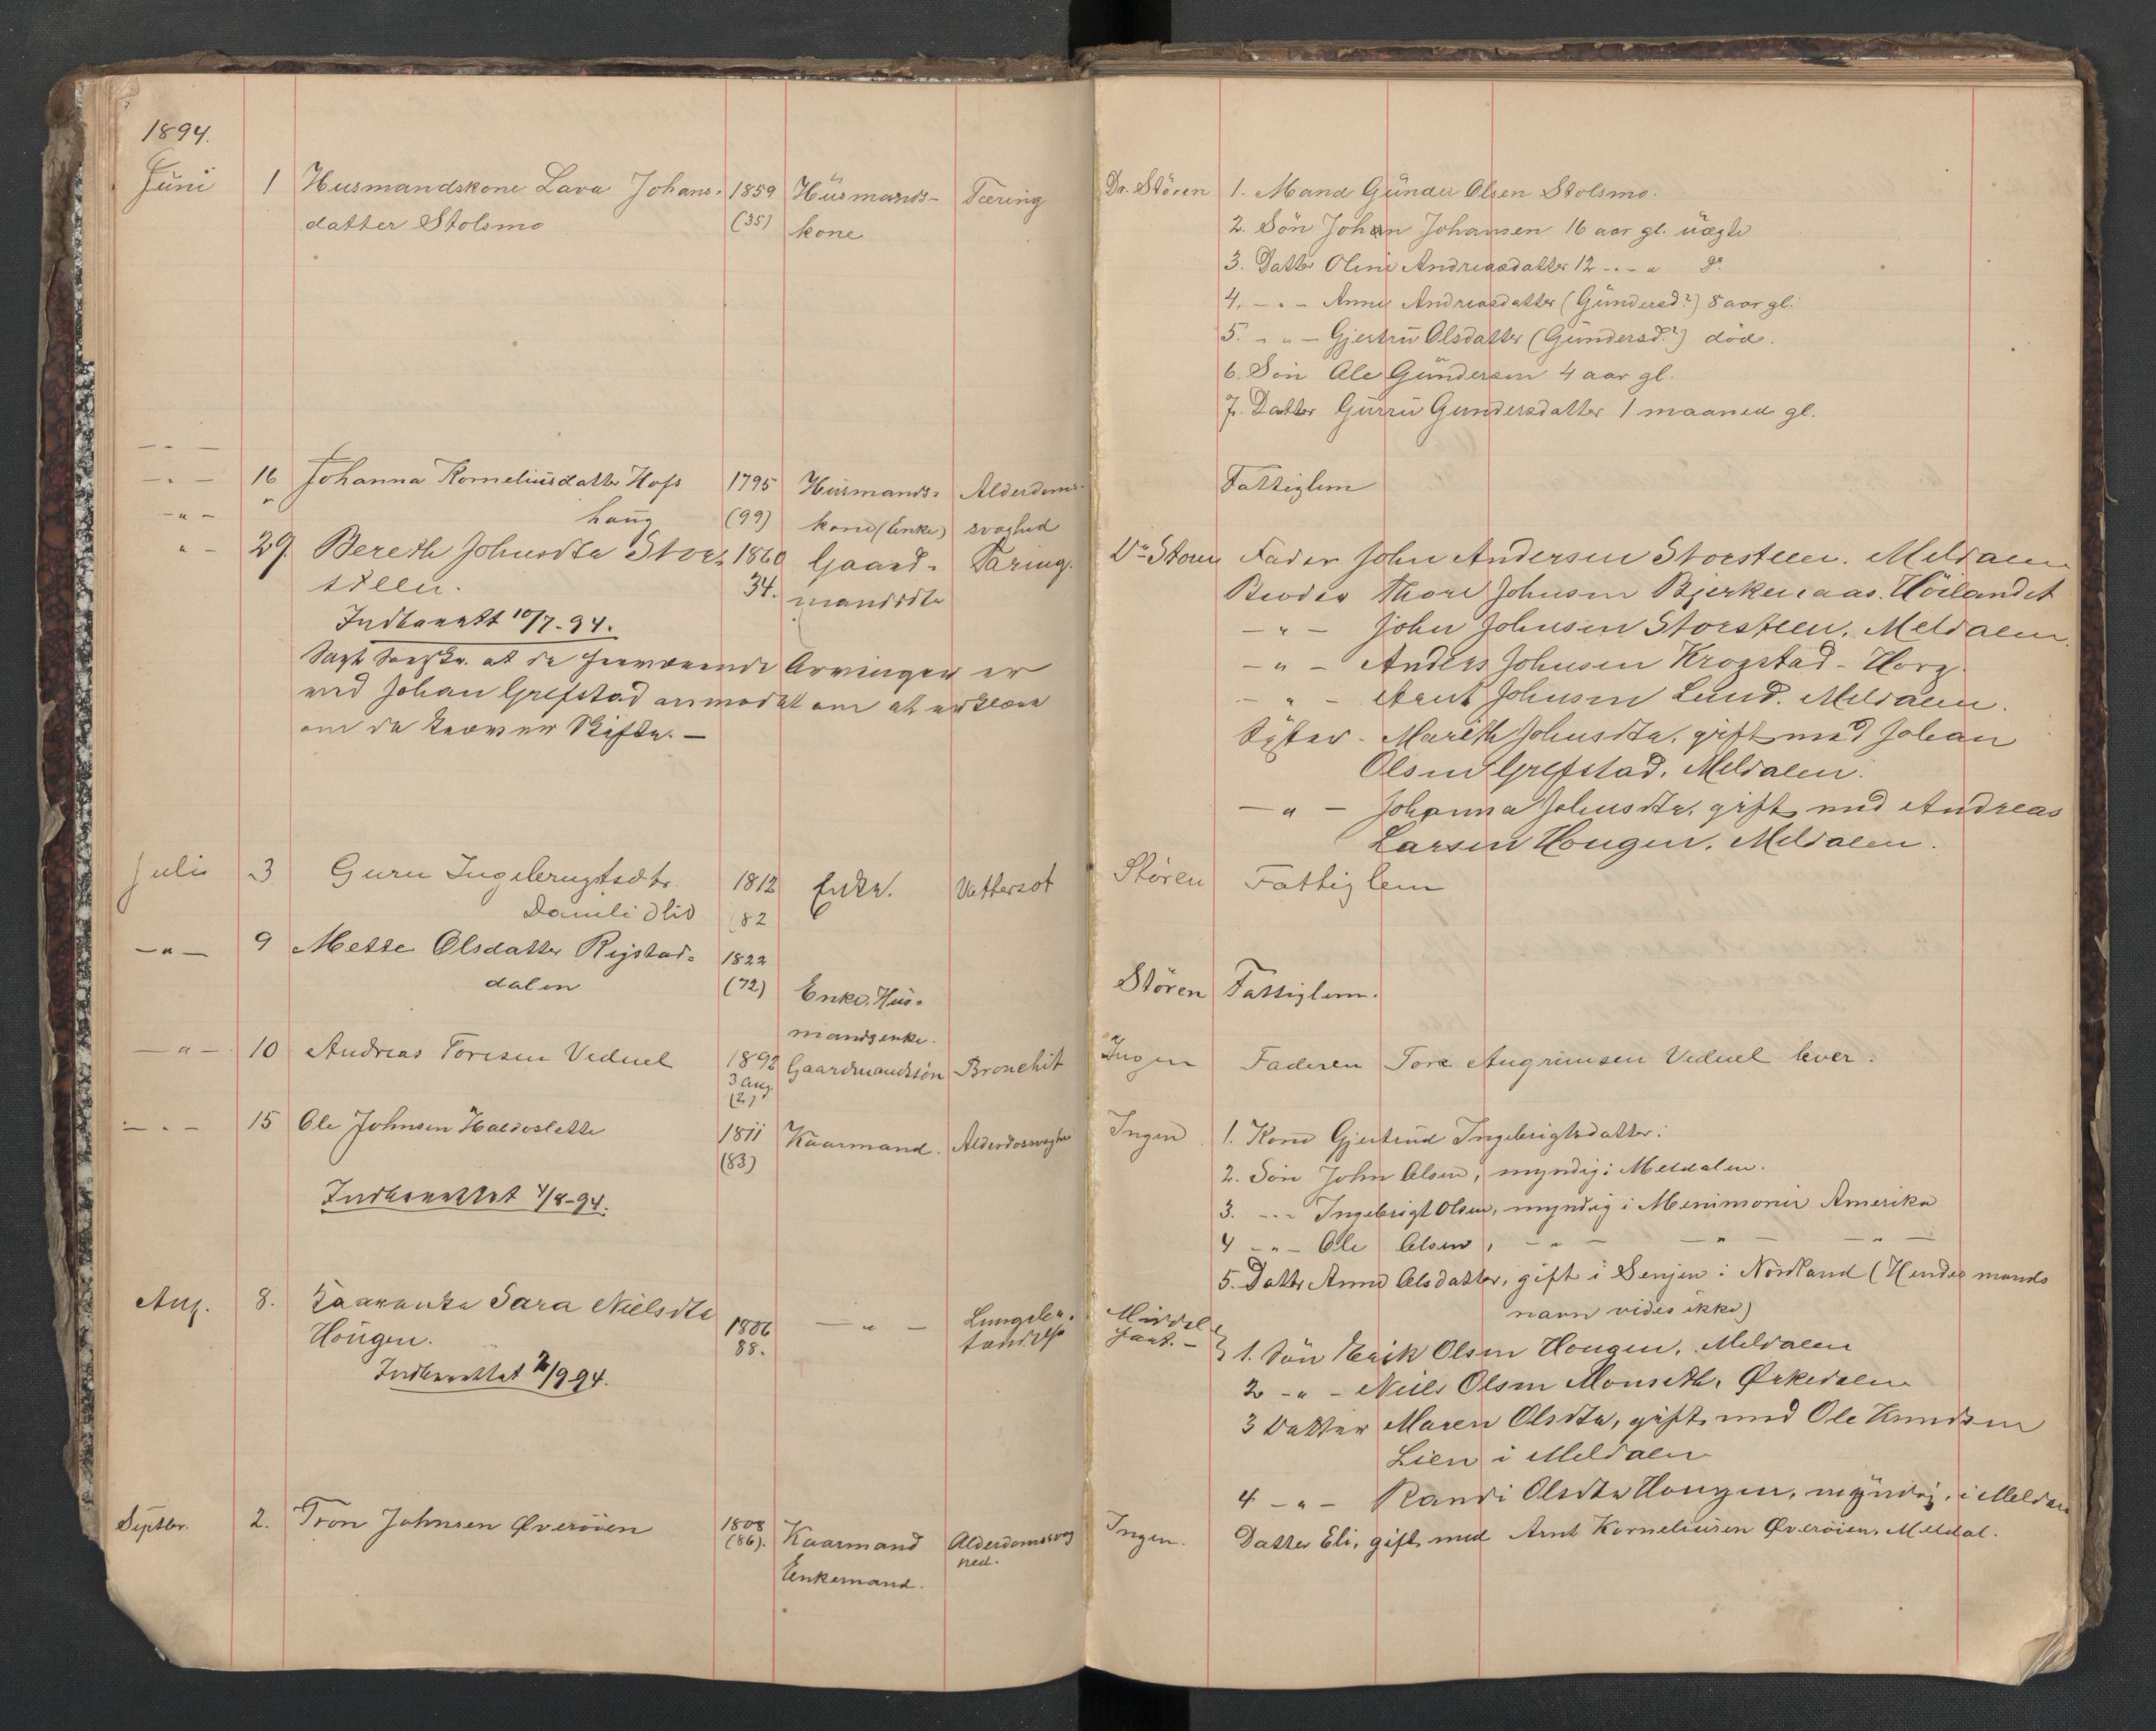 1894.
Juni 1 Husmandskone Lava Johans- 1859 Husmands- Tæring
datter Stolsmo (35) kone
16 Johanna Korneliusdatter Hofs 1795 Husmands- Alderdoms-
haug (99) kone (Enke) svaghed
29. Bereth Johnsdtr Stor- 1860 Gaard- Tæring.
steen. 34. mandsdtr
Indberett 10/7-94.
at de Arvinger er
ved Johan Grefstad anmodet om at erklære
om de kræver Skifte. —
Juli 3 Guru Ingebrigtsdtr. 1812 Enke. Vattersot
82
— " — 9 Mette Olsdatter Rigstad- 1822
dalen (72) Enke. Hus-
mandsenke.
— " — 10 Andreas Toresen Veduel 1892 Gaardmandssön Bronchit
3 Aug.
(2)
— " — 15 Ole Johnsen Haldoslette 1811 Kaarmand. Alderdossvaghed
(83)
Indberettet 4/8-94.
Aug. 8. Kaarenke Sara Nielsdtr — " — Lungebe-
Hougen. 1806 tændelse
88.
Indberettet /9 94.
Septbr. 2. Tron Johnsen Øveröien 1808 Kaarmand Alderdomssvag
(86). Enkemand. hed.
Dr. Stören 1. Mand Gunder Olsen Stolsmo.
2. Sön Johan Johansen 16 aar gl. uægte
3. Datter Oline Andreasdatter 12 - " - " do
4. — " — Anne Andreasdatter (Gundersd?) 8 aar gl.
5. " " — Gjertru Olsdatter (Gundersd?) död.
6. Sön Ole Gundersen 4 aar gl.
7. Datter Gurru Gundersdatter 1 maaned gl.
Fattiglem
Dr Stören Fader John Andersen Storsteen. Meldalen
Broder Thore Johnsen Bjerkenaas. Hölandet
— " — John Johnsen Storsteen. Meldalen.
— " — Anders Johnsen Krogstad - Horg.
— " — Arnt Johnsen Lund. Meldalen.
Syster - Marith Johnsdtr. gift med Johan
Olsen Grefstad. Meldalen.
— " — Johanna Johnsdtr. gift med Andreas
Larsen Hougen. Meldalen.
Stören Fattiglem
Stören Fattiglem.
Ingen Faderen Tore Angrimsen Veduel lever.
Ingen 1. Kone Gjertrud Ingebrigtsdatter:
2. Sön John Olsen, myndig i Meldalen.
3. — " — Ingebrigt Olsen, myndig i Menimonie Amerika
4 — " — Ole Olsen, — " — — " — — " —
5. Datter Anne Olsdatter, gift i Senjen i Nordland (Hendes mands
navn vides ikke)
1. Sön Erik Olsen Hougen. Meldalen
2 — " — Niels Olsen Monseth. Ørkedalen
3 Datter Maren Olsdtr, gift med Ole Knudsen
Lien i Meldalen
4 — " — Randi Olsdtr Hougen, myndig. i Meldalen
Ingen. Datter Eli, gift med Arnt Korneliusen Øveröien. Meldal.